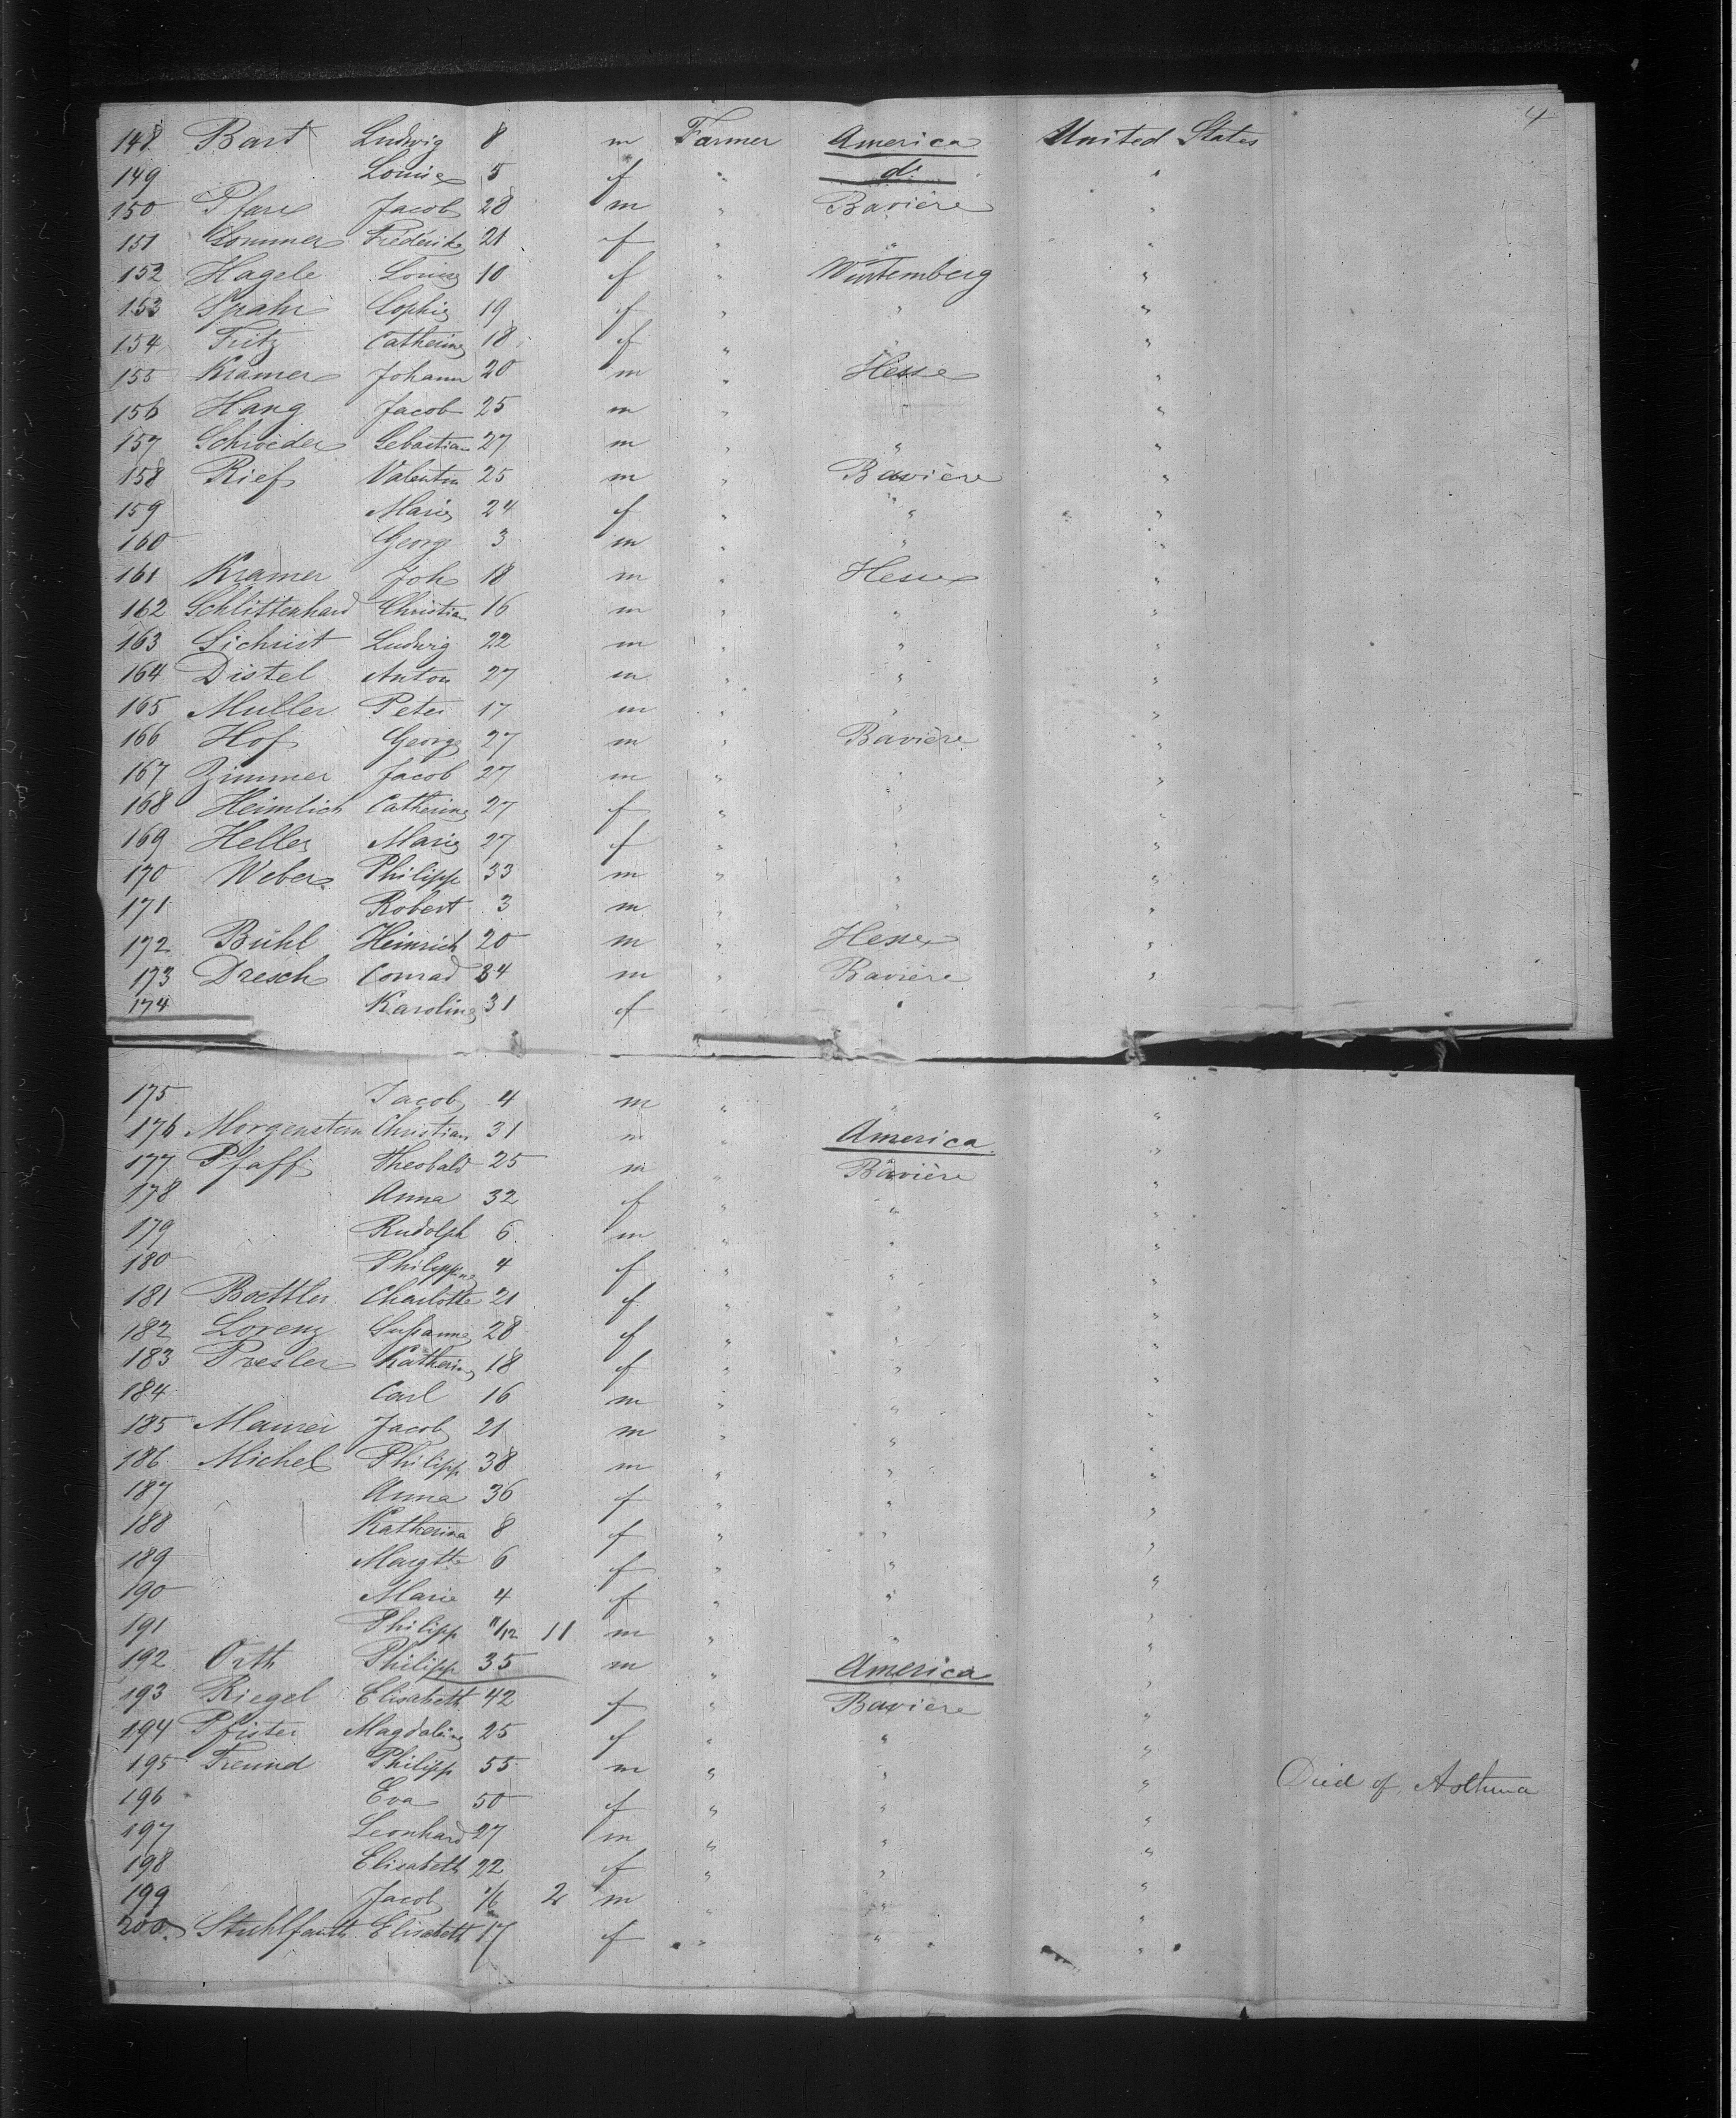 4
148 Bast Ludwig 8 m Farmer America United States
149 Louise 5 f " do "
150 Jacob 28 m " Bavière "
151 Sommer Frederike 21 f " " "
152 Hagele Louise 10 f " Wurtemberg "
153 Spahr Sophie 19 f " " "
154 Fritz Catherine 18 f " " "
155 Kramer Johann 20 m " Hesse "
156 Hang Jacob 25 m " " "
157 Schroeder Sebastian 27 m " " "
158 Rief Valentin 25 m " Bavière "
159 Marie 24 f " " "
160 Georg 3 m " " "
161 Kramer Joh 18 m " Hesse "
162 Schlittenhard Christian 16 m " " "
163 Sichrist Ludwig 22 m " " "
164 Distel Anton 27 m " " "
165 Muller Peter 17 m " " "
166 Hof Georg 27 m " Bavière "
167 Zimmer Jacob 27 m " " "
168 Heimlich Catherine 27 f " " "
169 Heller Marie 27 f " " "
170 Weber Philipp 33 m " " "
171 Robert 3 m " " "
172 Bühl Heinrich 20 m " Hesse "
173 Dresch Conrad 34 m " Bavière "
174 Karoline 31 f " "
175 Jacob 4 m " " "
176 Morgenstern Christian 31 m " America "
177 Pfaff Theobald 25 m " Bavière "
178 Anna 32 f " " "
179 Rudolph 6 m " " "
180 Philippine 4 f " " "
181 Boettler Charlotte 21 f " " "
182 Lorenz Susanne 28 f " " "
183 Presler Katherine 18 f " " "
184 Carl 16 m " " "
185 Maurer Jacob 21 m " " "
186 Michel Philipp 38 m " " "
187 Anna 36 f " " "
188 Katherina 8 f " " "
189 Margtte 6 f " " "
190 Marie 4 f " " "
191 Philipp 11/12 11 m " " "
192 Orth Philipp 35 m " America "
193 Riegel Elisabeth 42 f " Bavière "
194 Pfister Magdaline 25 f " " "
195 Freund Philipp 55 m " " " Died of Asthma
196 Eva 50 f " " "
197 Leonhard 27 m " " "
198 Elisabeth 22 f " " "
199 Jacob 1/6 2 m " " "
200 Stuhlfauth Elisabeth 17 f " " "